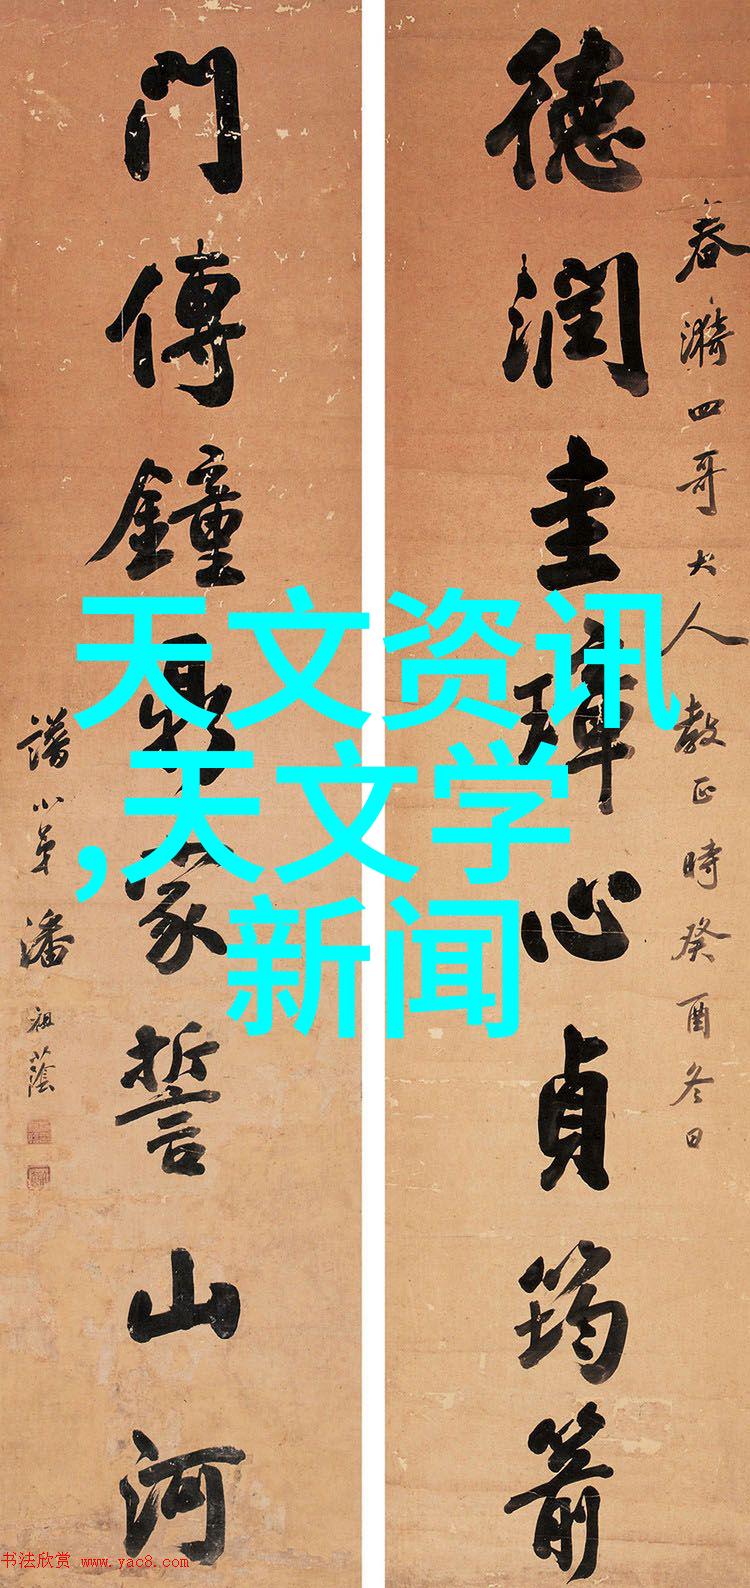 德润圭璋心貞筠箭
春漪四哥大人教正時癸酉冬日
門傳鐘鼎家誓山河
譜小弟潘祖蔭
天文资讯
,天文学
新闻
书法欣赏 www.yac8.com